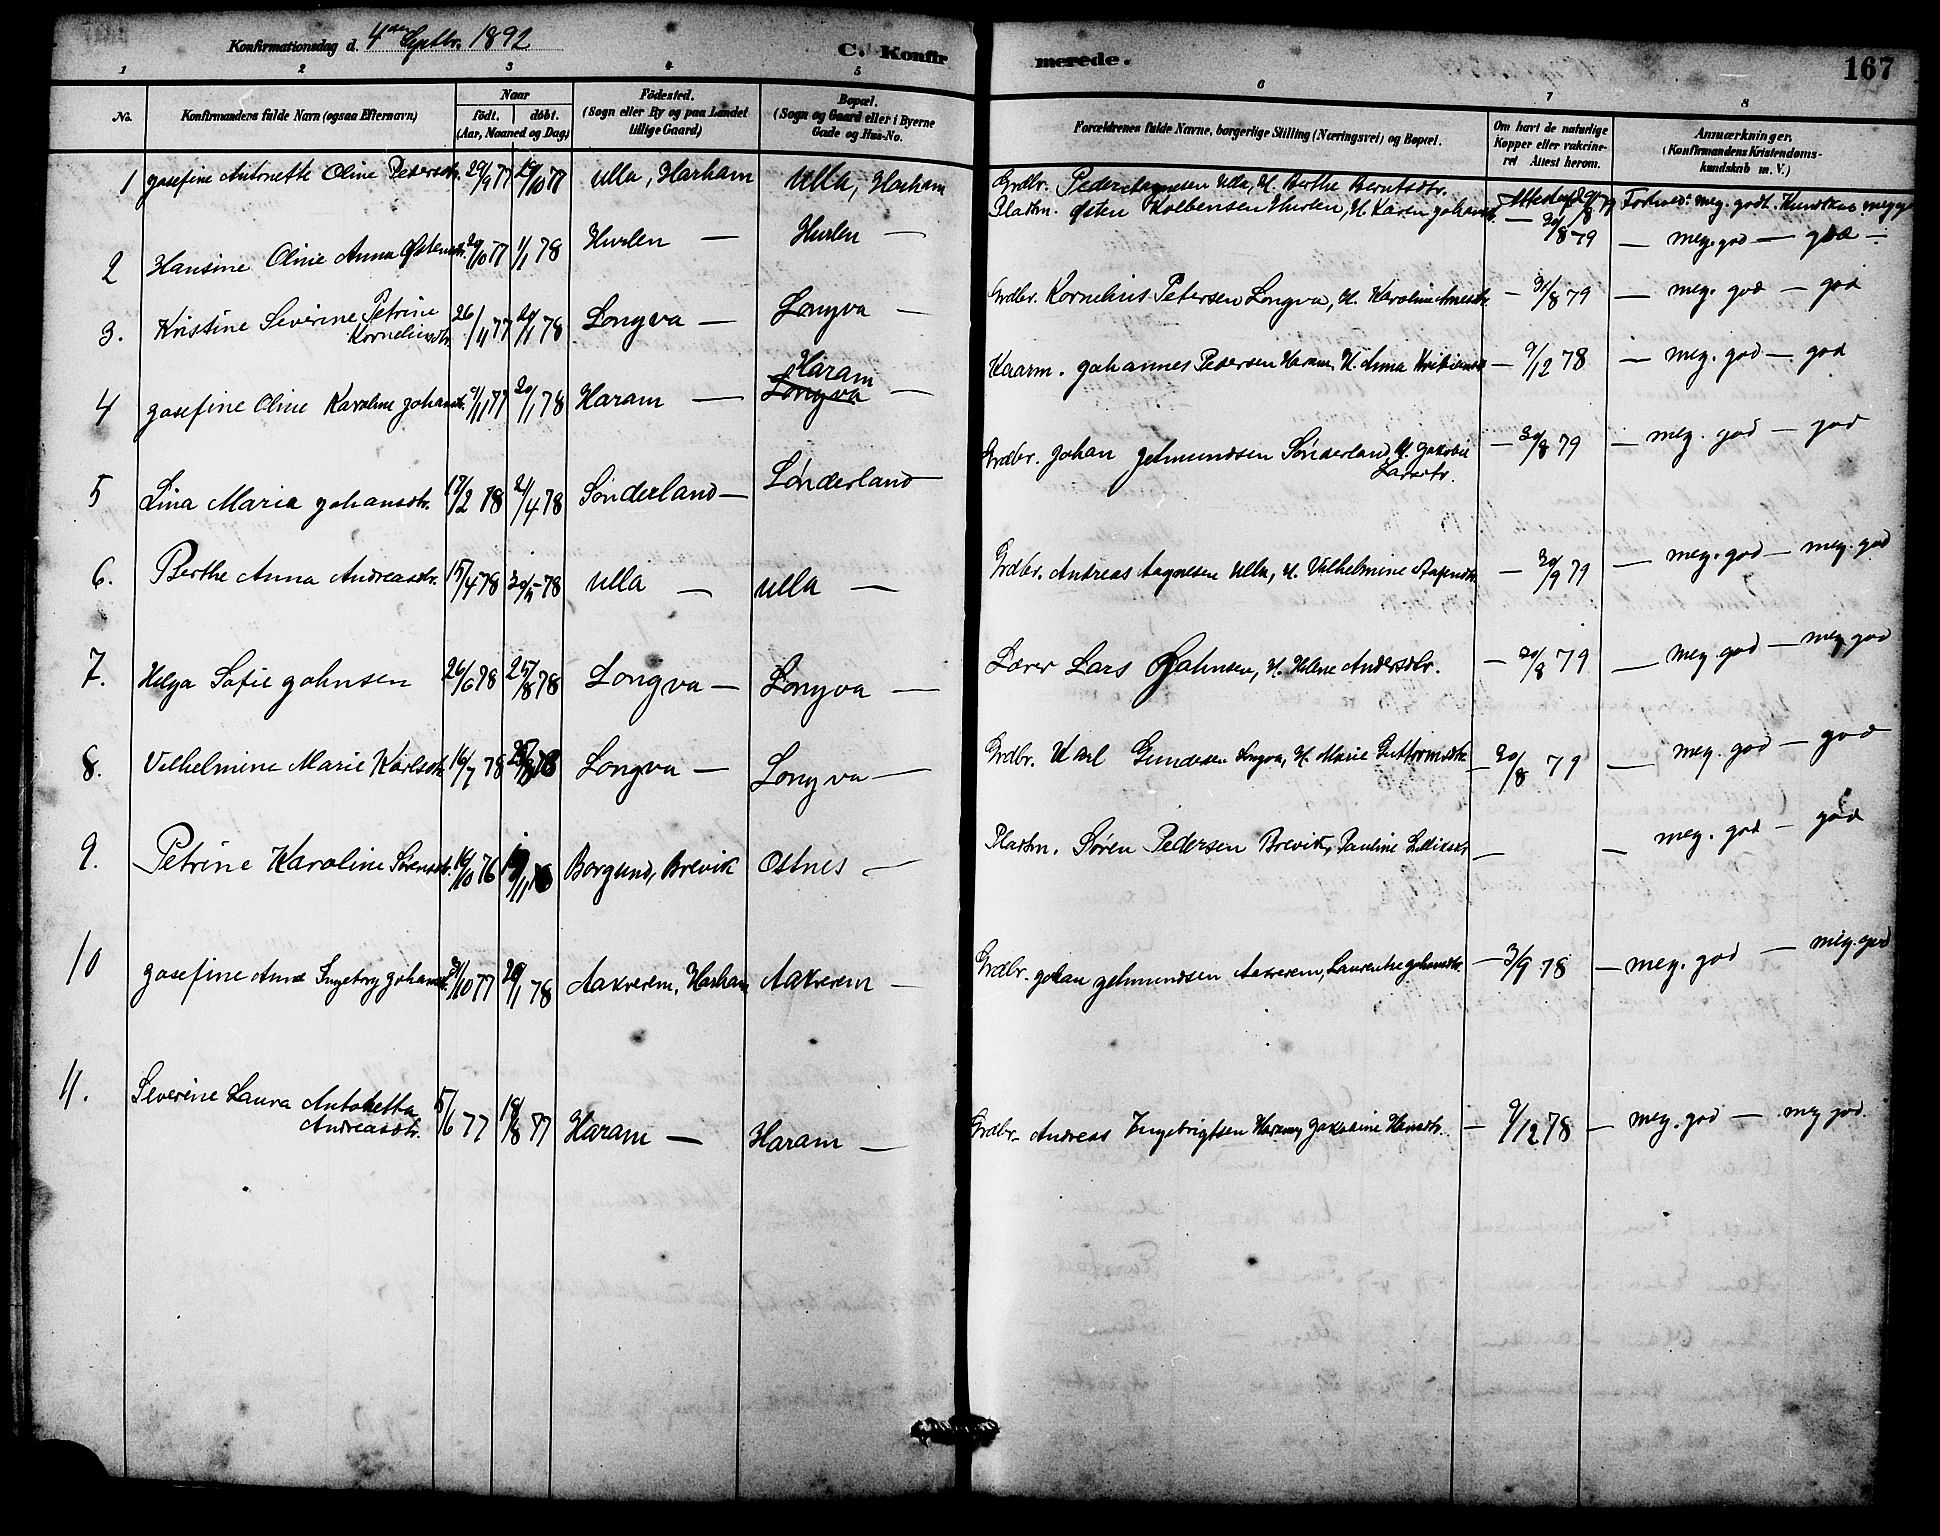 Konfirmationsdag d. 4de Septbr. 1892
C. Konfirmerede.
167
1 2 3 4 5 6 7 8
No.
Konfirmandens fulde Navn (ogsaa Efternavn)
Naar
født. døbt.
(Aar, Maaned og Dag)
Fødested.
(Sogn eller By og paa Landet
tillige Gaard)
Bopæl.
(Sogn og Gaard eller i Byerne
Gade og Hus-No.
Forældrenes fulde Navne, borgerlige Stilling (Næringsvei) og Bopæl.
Om havt de naturlige
Kopper eller vakcine-
ret Attest herom.
Anmærkninger.
(Konfirmandens Kristendoms-
kundskab m. V.)
1 Josefine Antonette Oline Pedersdtr. 29/9 77 Ulla, Harham Ulla, Harham Grdbr. Peder Aagnesen Ulla, H. Berthe Berntsdtr. Forhold: meg. godt.
2 Hansine Oline Anna Østensdtr. 1/1 78 Hurlen — Hurlen — Pladsm. Østen Kolbensen Hurlen, H. Karen — 30/8 79 — meg. god — god —
3. Kristine Severine Petrine
Korneliusdtr. 26/11 77 20/1 78 Longva — Longva — Grdbr. Kornelius Petersen Longva, H. Karoline — 30/8 79 — meg. god — god
4 Josefine Oline Karoline Johansdtr. 9/11 77 20/1 78 Haram — Haram
Longva — Kaarm. Johannes Pedersen Haram, H. Anna — 9/12 78 — meg. god — god
5 Lina Maria Johansdtr. 17/2 78 21/4 78 Sønderland — Sønderland — Grdbr. Johan Jetmundsen Sønderland, H. Jakobie
Larsdtr. — 30/8 79 — meg. god — god
6. Berthe Anna Andreasdtr. 15/4 78 30/5 78 Ulla — Ulla — Grdbr. Andreas Aagnesen Ulla, H. Vilhelmine — 30/9 79 — meg. god — meg. god
7. Helga Sofie Johnsen 26/6 78 25/8 78 Longva — Longva — Lærer Lars Johnsen, H. Helene Andersdtr. — 30/8 79 — meg. god — meg god
8. Vilhelmine Marie Karlsdtr. 16/7 78 25/8 78 Longva — Longva — Grdbr. Karl Gundersen Longva, H. Marie Guttormsdtr. — 30/8 79 — meg. god — god
9. Petrine Karoline Sørensdtr. 16/10 76 Borgund, Brevik Ostnes — Pladsm. Søren Pedersen Brevik, Pauline — — meg. god — god
10 Josefine Anne Ingeborg Johansdtr. 31/10 77 20/1 78 Aakverem, Harham Aakverem — Grdbr. Johan Jetmundsen Aakverem, Laurentse Johansdtr. — 3/9 78 — meg. god — meg. god
11. Severine Laura Antonetta
Andreasdtr. 5/6 77 19/8 77 Haram — Haram — Grdbr. Andreas Ingebrigtsen Haram, Jakobine Hansdtr. — 9/12 78 — meg. god — meg god.